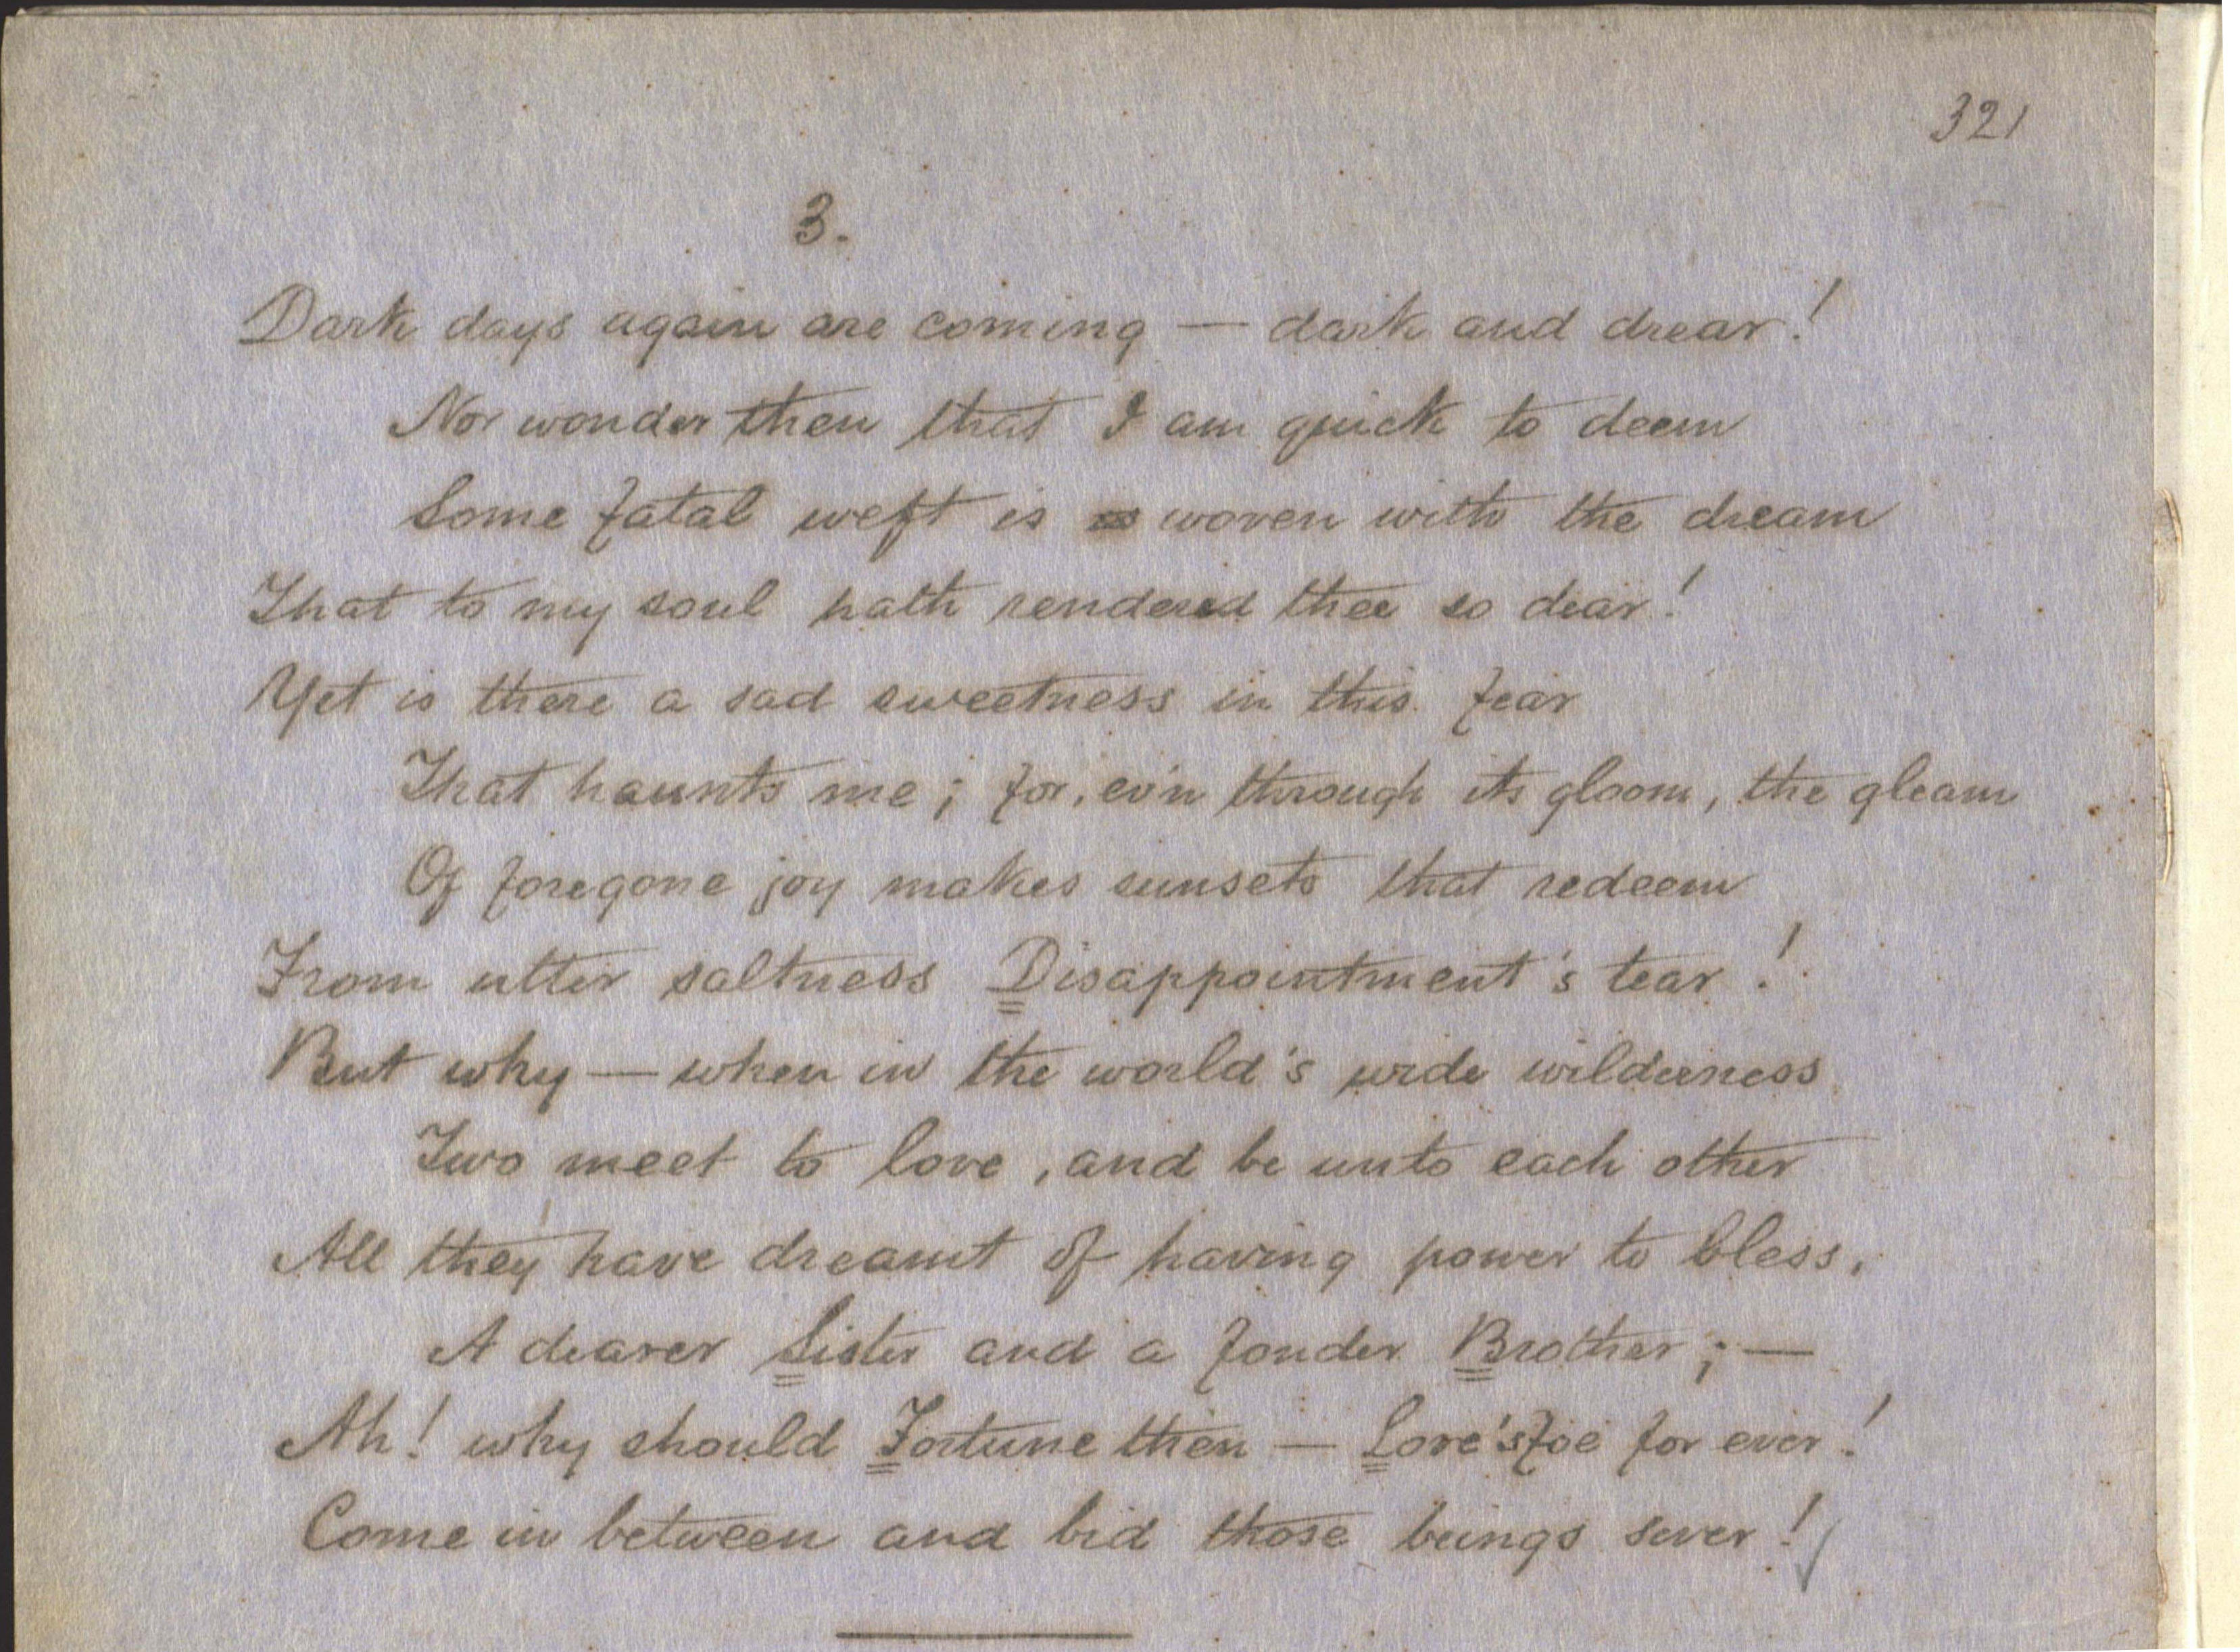 321
3.
Dark days again are coming — dark and drear!
Nor wonder then that I am quick to deem
Some fatal weft is woven with the dream
That to my soul hath rendered thee so dear!
Yet is there a sad sweetness in this fear
That haunts me; for, ev'n through its gloom, the gleam
Of foregone joy makes sunsets that redeem
From utter saltness Disappointment's tear!
But why — when in the world's wide wilderness
Two meet to love, and be unto each other
All they have dreamt of having power to bless,
A dearer Sister and a fonder Brother; —
Ah! why should Fortune then — Love's foe for ever!
Come in between and bid those beings sever!